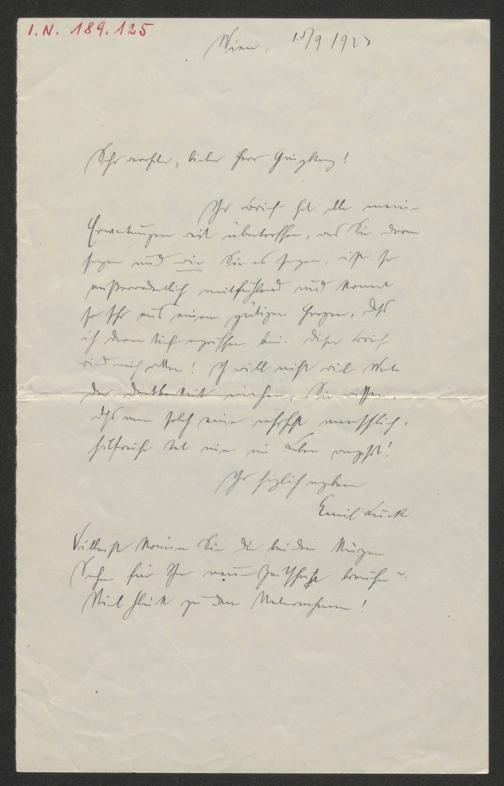 I.N. 189.125
Wien, 15/9 1923
Sehr verehrter, lieber Herr Ginzkey!
Ihr Brief hat alle meine
Erwartungen weit übertroffen, was Sie darin
sagen und wie Sie es sagen, ist so
außerordentlich mitfühlend und kommt
so sehr aus einem gütigen Herzen, daß
ich davon tief ergriffen bin. Dieser Brief
wird mich retten! Ich will nicht viel Worte
der Dankbarkeit machen, Sie wissen,
daß man solch eine wahrhaft menschlich-
hilfreiche Tat nie im Leben vergißt!
Ihr herzlich ergebener
Emil Lucka
Vielleicht können Sie die beiden kurzen
Sachen für Ihre neue Zeitschrift brauchen.
Viel Glück zu dem Unternehmen!